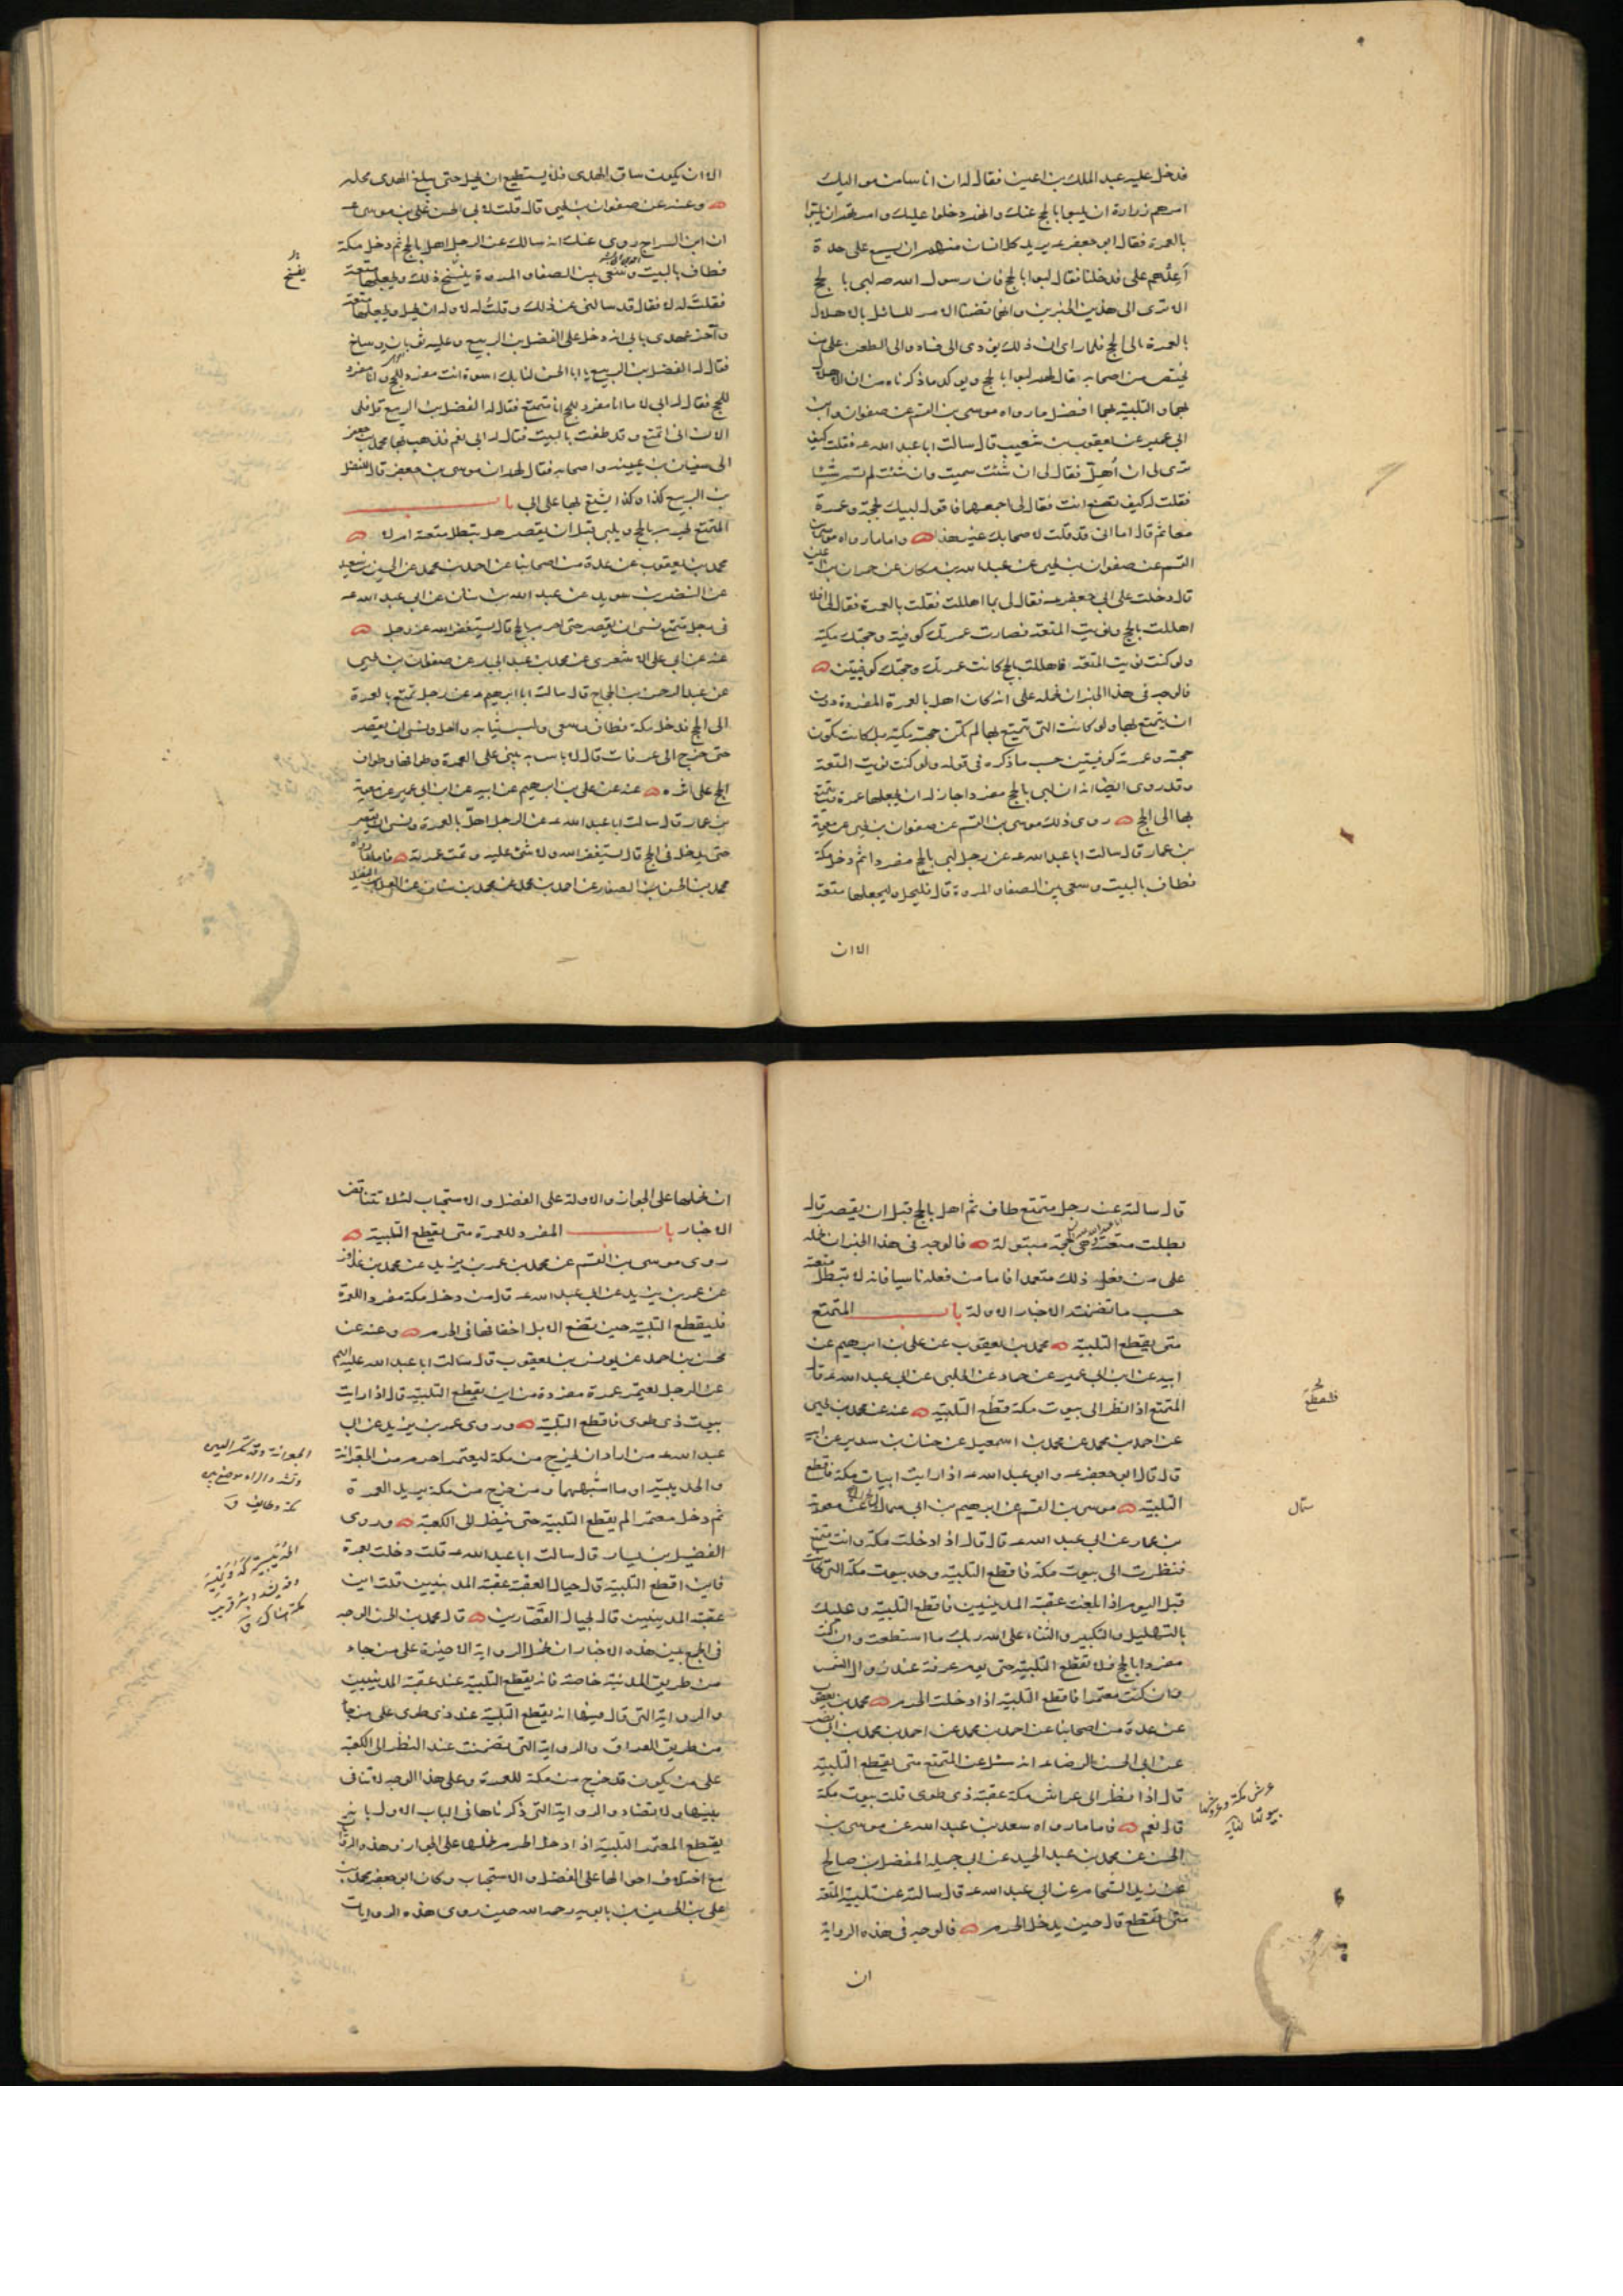 فدخل عليه عبد الملك بن اعين فقال له ان اناسا من مواليك
امرهم زرارة ان يلبوا بالحج عنك وانهم دخلوا عليك وامرتهم ان يلبوا
بالعمرة فقال ابو جعفر عه يريد كل انسان منهم ان يسمع على حدة
أعِدْهم على فدخلنا فقال لبوا بالحج فان رسول الله صه لبى بالحج
الا ترى الى هذين الخبرين وانهما تضمنا الامر للسائل بالاهلال
بالعمرة الى الحج فلما راى ان ذلك يودى الى فساد والى الطعن على من
يختص من اصحابه قال لهم لبوا بالحج ويوكد ما ذكرناه من ان الاهلال
بهما والتلبية بهما افضل ما رواه موسى بن القسم عن صفوان وابن
ابى عمير عن يعقوب بن شعيب قال سالت ابا عبد الله عه فقلت كيف
ترى لى ان اُهلّ فقال لى ان شئت سميت وان شئت لم تسم شيئا
فقلت له كيف تصنع انت فقال لى اجمعهما فاقول لبيك بحجة وعمرة
معا ثم قال اما انى قد قلت لاصحابك غير هذا واما ما رواه موسى بن
القسم عن صفوان بن يحيى عن عبد الله بن مسكان عن حمران بن اعين
قال دخلت على ابى جعفر عه فقال لى بما اهللت فقلت بالعمرة فقال لى افلا
اهللت بالحج ونويت المتعة فصارت عمرتك كوفية وحجتك مكية
ولو كنت نويت المتعة فاهللت بالحج كانت عمرتك وحجتك كوفيتين
فالوجه فى هذا الخبر ان نحمله على انه كان اهل بالعمرة المفردة دون
ان يتمتع بها ولو كانت التى تتمتع بها لم تكن حجته مكية بل كانت تكون
حجته وعمرته كوفيتين حسب ما ذكره فى قوله ولو كنت نويت المتعة
وقد روى ايضا انه ان لبى بالحج مفردا جاز له ان يجعلها عمرة ويتمتع
بها الى الحج روى ذلك موسى بن القسم عن صفوان بن يحيى عن معوية
بن عمار قال سالت ابا عبد الله عه عن رجل لبى بالحج مفردا ثم دخل مكة
فطاف بالبيت وسعى بين الصفا والمروة قال فليحل وليجعلها متعة
الا ان
الا ان يكون ساق الهدى فلا يستطيع ان يحل حتى يبلغ الهدى محله
وعنه عن صفوان بن يحيى قال قلت لابى الحسن على بن موسى عه
ان ابن السراج روى عنك انه سالك عن الرجل اهل بالحج ثم دخل مكة
فطاف بالبيت وسعى بين الصفا والمروة يفسخ ذلك ويجعلها متعة
يفسخ
فقلت له لا فقال قد سالنى عن ذلك وقلت له لا وله ان يحل ويجعلها متعة
وآخر عهدى بابى انه دخل على الفضل بن الربيع وعليه ثوبان وساج
فقال له الفضل بن الربيع يا ابا الحسن لنا بك اسوة انت مفرد للحج وانا مفرد
للحج فقال له ابى لا ما انا مفرد للحج انا متمتع فقال له الفضل بن الربيع فلى
الان ان اتمتع وقد طفت بالبيت فقال له ابى نعم فذهب بها محمد بن جعفر
الى سفيان بن عيينه واصحابه فقال لهم ان موسى بن جعفر قال للفضل
بن الربيع كذا وكذا يشنع بها على ابى باب
المتمتع يحرم بالحج ويلبى قبل ان يقصر هل يبطل متعته ام لا
محمد بن يعقوب عن عدة من اصحابنا عن احمد بن محمد عن الحسين بن سعيد
عن النضر بن سويد عن عبد الله بن سنان عن ابى عبد الله عه
فى رجل متمتع نسى ان يقصر حتى احرم بالحج قال يستغفر الله عز وجل
عنه عن ابى على الاشعرى عن محمد بن عبد الجبار عن صفوان بن يحيى
عن عبد الرحمن بن الحجاج قال سالت ابا ابرهيم عه عن رجل تمتع بالعمرة
الى الحج فدخل مكة فطاف وسعى ولبس ثيابه واحل ونسى ان يقصر
حتى خرج الى عرفات قال لا باس به يبنى على العمرة وطوافها وطواف
الحج على اثره عنه عن على بن ابرهيم عن ابيه عن ابن ابى عمير عن معوية
بن عمار قال سالت ابا عبد الله عه عن الرجل اهلّ بالعمرة ونسى ان يقصر
حتى يدخل فى الحج قال يستغفر الله ولا شئ عليه وتمت عمرته فاما ما رواه
محمد بن الحسن الصفار عن احمد بن محمد عن محمد بن سنان عن العلا بن الفضيل
قال سالته عن رجل متمتع طاف ثم اهل بالحج قبل ان يقصر قال
بطلت متعته هى حجة مبتولة فالوجه فى هذا الخبر ان نحمله
على من فعل ذلك متعمدا فاما من فعله ناسيا فانه لا تبطل متعته
حسب ما تضمنته الاخبار الاولة باب المتمتع
متى يقطع التلبية محمد بن يعقوب عن على بن ابرهيم عن
ابيه عن ابن ابى عمير عن حماد عن الحلبى عن ابى عبد الله عه قال
المتمتع اذا نظر الى بيوت مكة قطع التلبية عنه عن محمد بن يحيى
عن احمد بن محمد عن محمد بن اسمعيل عن حنان بن سدير عن ابيه
قال قال ابو جعفر عه وابو عبد الله عه اذا رايت ابيات مكة فاقطع
التلبية موسى بن القسم عن ابرهيم بن ابى سمال عن معوية
سمّال
بن عمار عن ابى عبد الله عه قال قال اذا دخلت مكة وانت متمتع
فنظرت الى بيوت مكة فاقطع التلبية وحد بيوت مكة التى كانت
قبل اليوم اذا بلغت عقبة المدنيين فاقطع التلبية وعليك
بالتهليل والتكبير والثناء على الله ربك ما استطعت وان كنت
مفردا بالحج فلا تقطع التلبية حتى يوم عرفة عند زوال الشمس
وان كنت معتمرا فاقطع التلبية اذا دخلت الحرم محمد بن يعقوب
عن عدة من اصحابنا عن احمد بن محمد عن احمد بن محمد بن ابى نصر
عن ابى الحسن الرضا عه انه سئل عن المتمتع متى يقطع التلبية
قال اذا نظر الى عراش مكة عقبة ذى طوى قلت بيوت مكة
عرش مكة وعروشها
بيوتها
قال نعم فاما ما رواه سعد بن عبد الله عن موسى بن
الحسن عن محمد بن عبد الحميد عن ابى جميلة المفضل بن صالح
عن زيد الشحام عن ابى عبد الله عه قال سالته عن تلبية المتعة
متى تقطع قال حين يدخل الحرم فالوجه فى هذه الرواية
ان
ان نحملها على الجواز والاولة على الفضل والاستحباب لئلا تتناقض
الاخبار باب المفرد للعمرة متى يقطع التلبية
روى موسى بن القسم عن محمد بن عمر بن يزيد عن محمد بن عذافر
عن عمر بن يزيد عن ابى عبد الله عه قال من دخل مكة مفردا للعمرة
فليقطع التلبية حين تضع الابل اخفافها فى الحرم وعنه عن
محسن بن احمد عن يونس بن يعقوب قال سالت ابا عبد الله عليه السلم
عن الرجل يعتمر عمرة مفردة من اين يقطع التلبية قال اذا رايت
بيوت ذى طوى فاقطع التلبية وروى عمر بن يزيد عن ابى
عبد الله عه من اراد ان يخرج من مكة ليعتمر احرم من الجعرانة
والحديبية او ما اشبههما ومن خرج من مكة يريد العمرة
ثم دخل معتمرا لم يقطع التلبية حتى ينظر الى الكعبة وروى
الفضيل بن يسار قال سالت ابا عبد الله عه قلت دخلت بعمرة
فاين اقطع التلبية قال حيال العقبة عقبة المدنيين قلت اين
عقبة المدنيين قال بحيال القصّارين قال محمد بن الحسن الوجه
فى الجمع بين هذه الاخبار ان نحمل الرواية الاخيرة على من جاء
من طريق المدينة خاصة فانه يقطع التلبية عند عقبة المدنيين
والرواية التى قال فيها انه يقطع التلبية عند ذى طوى على من جا
من طريق العراق والرواية التى تضمنت عند النظر الى الكعبة
على من يكون قد خرج من مكة للعمرة وعلى هذا الوجه لا تنافى
بينها ولا تضاد والرواية التى ذكرناها فى الباب الاول بانه
يقطع المعتمر التلبية اذا دخل الحرم نحملها على الجواز وهذه الروايات
مع اختلاف احوالها على الفضل والاستحباب وكان ابو جعفر محمد بن
على بن الحسين بن بابويه رحمه الله حين روى هذه الروايات
الجعرانة وقد تكسر العين
وتشد الراء موضع بين
مكة وطايف ق